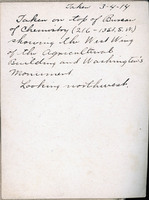 Taken 3-4-14
Taken on top of Bureau
of Chemistry (216-13th St. S.W.)
showing the West Wing
of the Agricultural
Building and Washington's
Monument
Looking northwest.